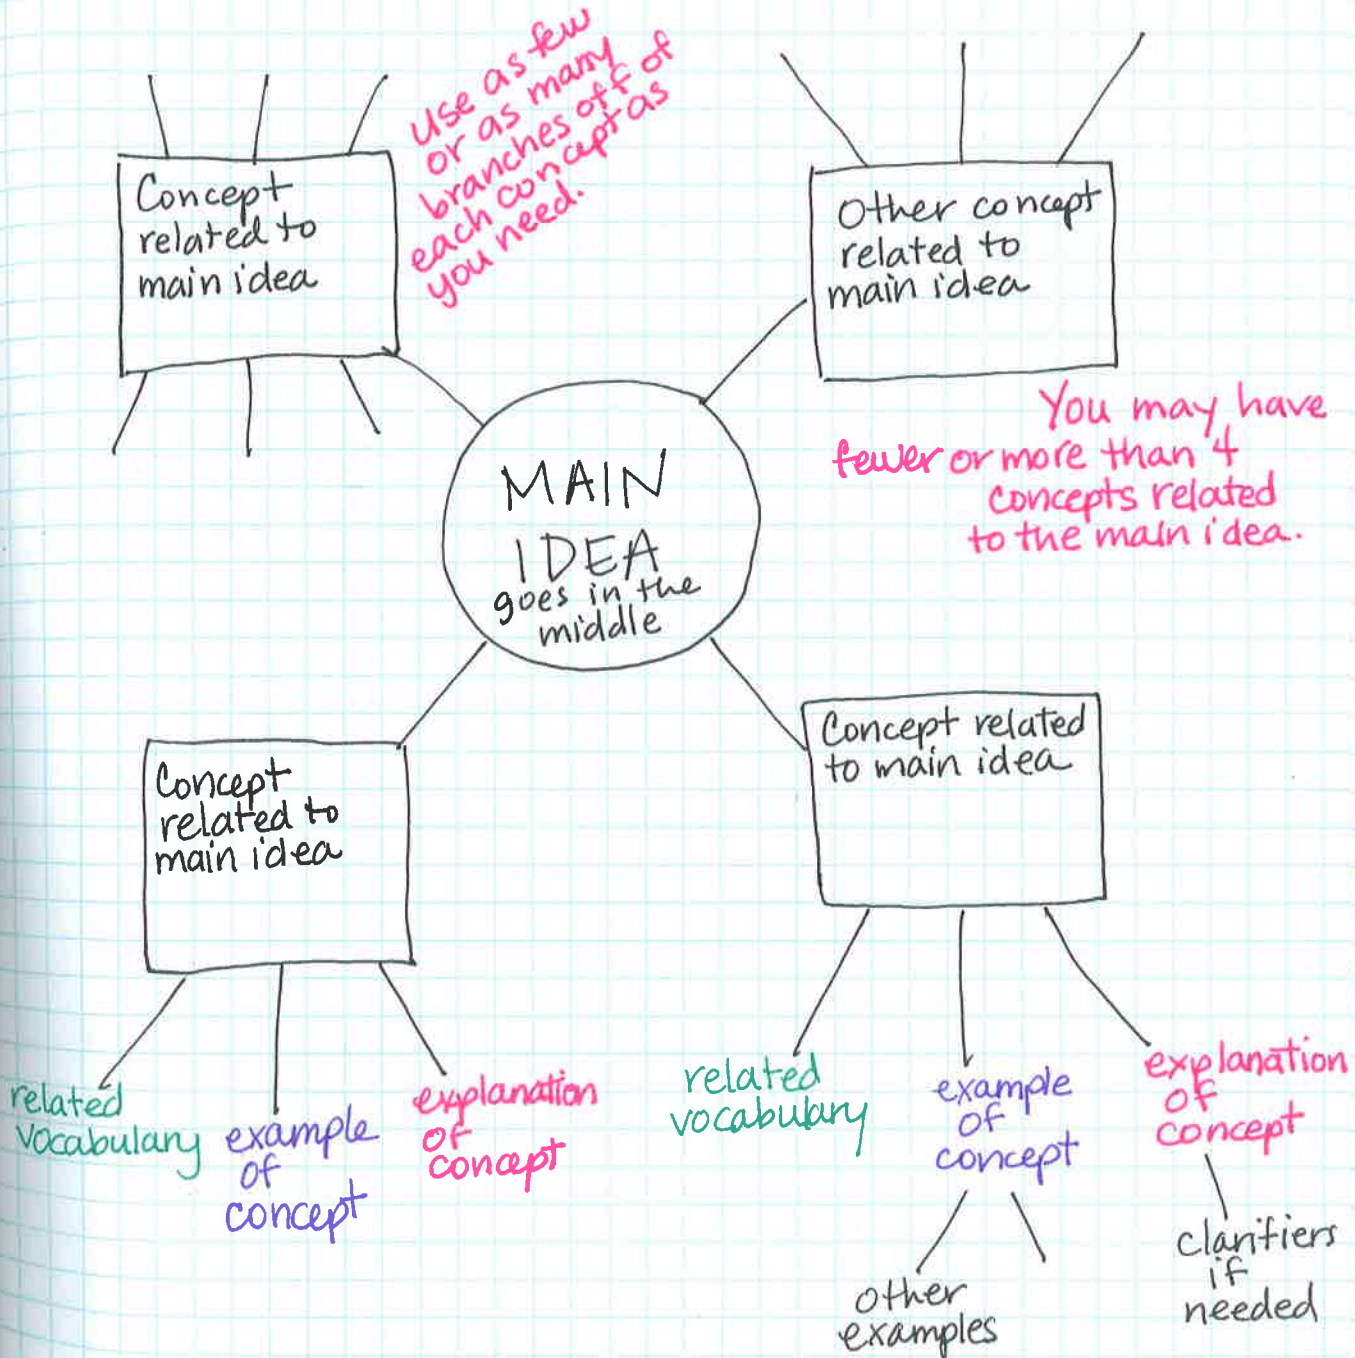 use as few
or as many
branches off of
each concept as
you need.
Concept
related to
main idea
Other concept
related to
main idea
You may have
fewer or more than 4
concepts related
to the main idea.
MAIN
IDEA
goes in the
middle
Concept
related to
main idea
Concept related
to main idea
related
vocabulary
example
of
concept
explanation
of
concept
related
vocabulary
example
of
concept
explanation
of
concept
other
examples
clarifiers
if
needed